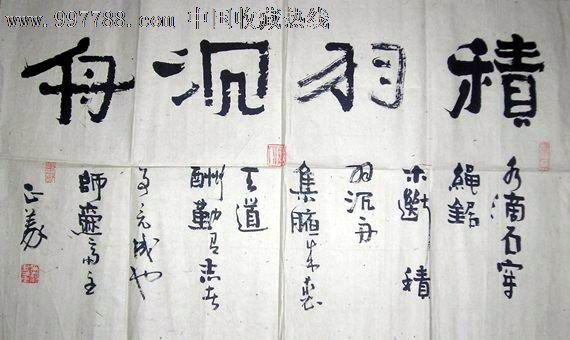 www.997788.com 中国收藏热线
積羽沉舟
水滴石穿
繩鋸
木斷積
羽沉舟
集腋成裘
天道
酬勤有志者
事竟成也
師齋主
正義